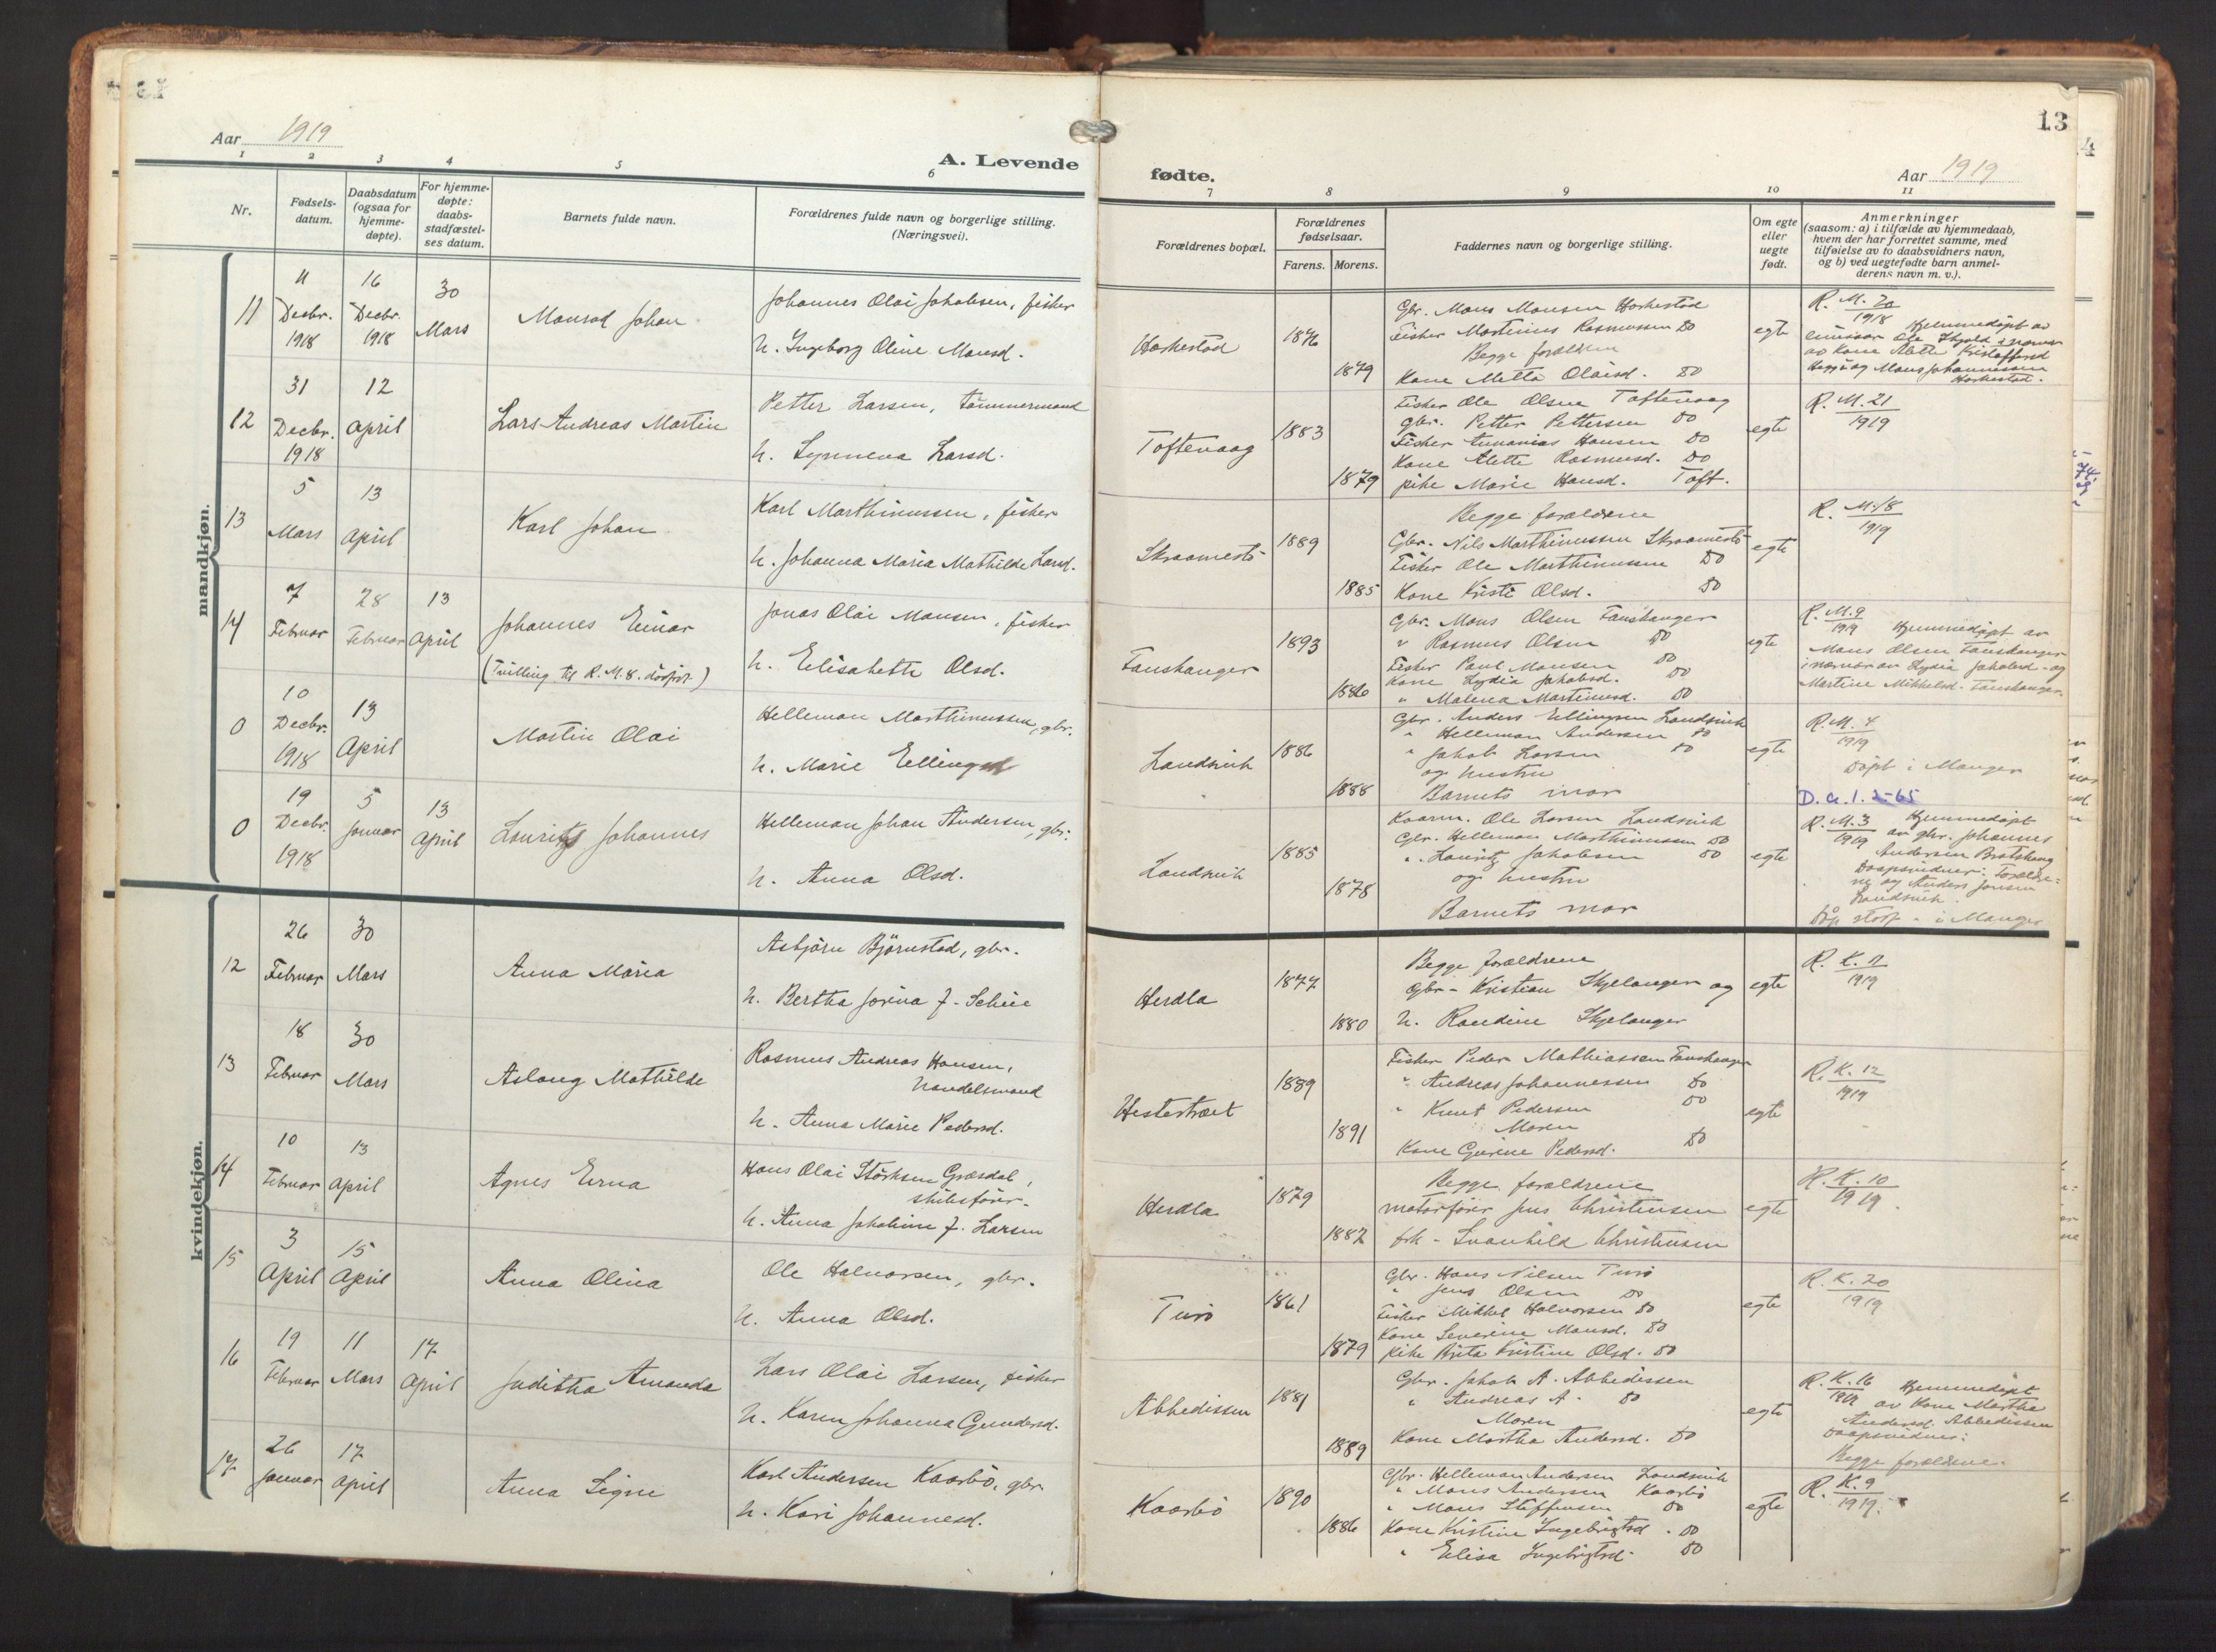 13
Aar 1919
A. Levende
fødte.
Aar 1919
1 2 3 4 5 6
7 8 9 10 11
Nr.
Fødsels-
datum.
Daabsdatum
(ogsaa for
hjemme-
døpte).
For hjemme-
døpte:
daabs-
stadfæstel-
ses datum.
Barnets fulde navn.
Forældrenes fulde navn og borgerlige stilling.
(Næringsvei).
Forældrenes bopæl.
Forældrenes
fødselsaar.
Farens. Morens.
Faddernes navn og borgerlige stilling.
Om egte
eller
uegte
født.
Anmerkninger
(saasom: a) i tilfælde av hjemmedaab,
hvem der har forrettet samme, med
tilføielse av to daabsvidners navn,
og b) ved uegtefødte barn anmel-
derens navn m. v.).
mandkjøn.
11
11
Decbr.
1918
16
Decbr.
1918
30
Mars
Monrad Johan
Johannes Olai Jakobsen, fisker
H. Ingeborg Oline Monsd.
Horkestad
1876
1879
Gbr. Mons Monsen Horkestad
Fisker Martinus Rasmussen Do
Begge forældrene
Kone Metta Olaisd. Do
egte
R. M. 20
1918 Hjemmedøpt av
Ole Skjold i nærvær
av Kone Alette Kristoffersd
og Mons Johannessen
Horkestad.
12
31
Decbr.
1918
12
April
Lars Andreas Martin
Petter Larsen, tømmermand
H. Synneva Larsd.
Toftevaag
1883
1879
Fisker Ole Olsen Toftevaag
gbr. Petter Pettersen Do
Fisker Annanias Hansen Do
Kone Alette Rasmusd. Do
pike Marie Hansd. Toft.
egte
R. M. 21
1919
13
5
Mars
13
April
Karl Johan
Karl Marthinussen, fisker
H. Johanna Maria Mathilde Larsd.
Skraamestø
1889
1885
Begge forældrene
Gbr. Nils Marthinussen Skraamestø
Fisker Ole Marthinussen Do
Kone Kristi Olsd. Do
egte
R. M. 18
1919
14
7
Februar
28
Februar
13
April
Johannes Einar
(Tvilling til R. M. 8. dødfødt.)
Jonas Olai Monsen, fisker
H. Elisabeth Olsd.
Fauskanger
1893
1886
Gbr. Mons Olsen Fauskanger
" Rasmus Olsen Do
Fisker Paul Monsen Do
Kone Lydia Jakobsd. Do
" Malena Martinusd. Do
egte
R. M. 9
1919 Hjemmedøpt av
Mons Olsen Fauskanger
i nærvær av Lydia Jakobsd. og
Martine Mikkelsd. Fauskanger.
0
10
Decbr.
1918
13
April
Martin Olai
Helleman Marthinussen, gbr.
H. Marie Ellingsd
Landsvik
1886
1888
Gbr. Anders Ellingsen Landsvik
" Helleman Andersen Do
" Jakob Larsen Do
og hustru
Barnets mor
egte
R. M. 4
1919
Døpt i Manger
0
19
Decbr.
1918
5
Januar
13
April
Lauritz Johannes
Helleman Johan Andersen, gbr.
H. Anna Olsd.
Landsvik
1885
1878
Kaarm. Ole Larsen Landsvik
Gbr. Helleman Marthinussen Do
" Lauritz Jakobsen Do
og hustru
Barnets mor
egte
D. a. 1. 2-65
R. M. 3 Hjemmedøpt
1919 av gbr. Johannes
Andersen Bratshaug
Daapsvidner: Forældre-
ne og Anders Jonsen
Landsvik.
Døp. stadf. i Manger
kvindekjøn.
12
26
Februar
30
Mars
Anna Maria
Asbjørn Bjørnstad, gbr.
H. Bertha Jorina f. Schie
Herdla
1877
1880
Begge forældrene
Gbr. Kristian Skjelanger og
H. Randine Skjelanger
egte
R. K. 11
1919
13
18
Februar
30
Mars
Aslaug Mathilde
Rasmus Andreas Hansen,
handelsmand
H. Anna Marie Pedersd.
Hestetræet
1889
1891
Fisker Peder Mathiassen Fauskanger
" Andreas Johannessen Do
" Knut Pedersen Do
Moren
Kone Gurine Pedersd. Do
egte
R. K. 12
1919
14
10
Februar
13
April
Agnes Erna
Hans Olai Størksen Græsdal,
skibsfører.
H. Anna Jakobine f. Larsen
Herdla
1879
1882
Begge forældrene
motorfører Jens Christensen
frk. Svanhild Christensen
egte
R. K. 10
1919.
15
3
April
15
April
Anna Olina
Ole Halvorsen, gbr.
H. Anna Olsd.
Turø
1861
1879
Gbr. Hans Nilsen Turø
" Jens Olsen Do
Fisker Mikkel Halvorsen Do
Kone Severine Monsd. Do
pike Brita Kristine Olsd. Do
egte
R. K. 20
1919
16
19
Februar
11
Mars
17
April
Juditha Amanda
Lars Olai Larsen, fisker
H. Karen Johanna Gundersd.
Abbedissen
1881
1889
Gbr. Jakob A. Abbedissen
" Andreas A. Do
Moren
Kone Martha Andersd. Do
egte
R. K. 16 Hjemmedøpt
1919 av Kone Martha
Andersd. Abbedissen
Daapsvidner:
Begge forældrene.
17
26
Januar
17
April
Anna Signe
Karl Andersen Kaarbø, gbr
H. Kari Johannesd.
Kaarbø
1890
1886
Gbr. Helleman Andersen Landsvik
" Mons Andersen Kaarbø
" Mons Steffensen Do
Kone Kristine Ingebrigtsd. Do
" Elisa Ingebrigtsd. Do
egte
R. K. 9
1919.